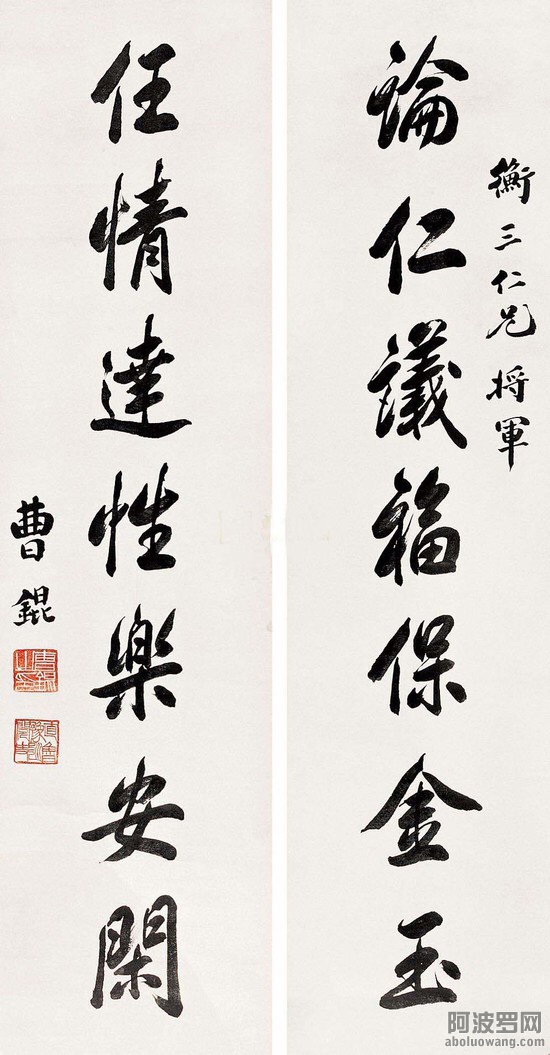 衡三仁兄將軍
論仁議福保金玉
任情達性樂安閑
曹錕
阿波罗网
aboluowang.com